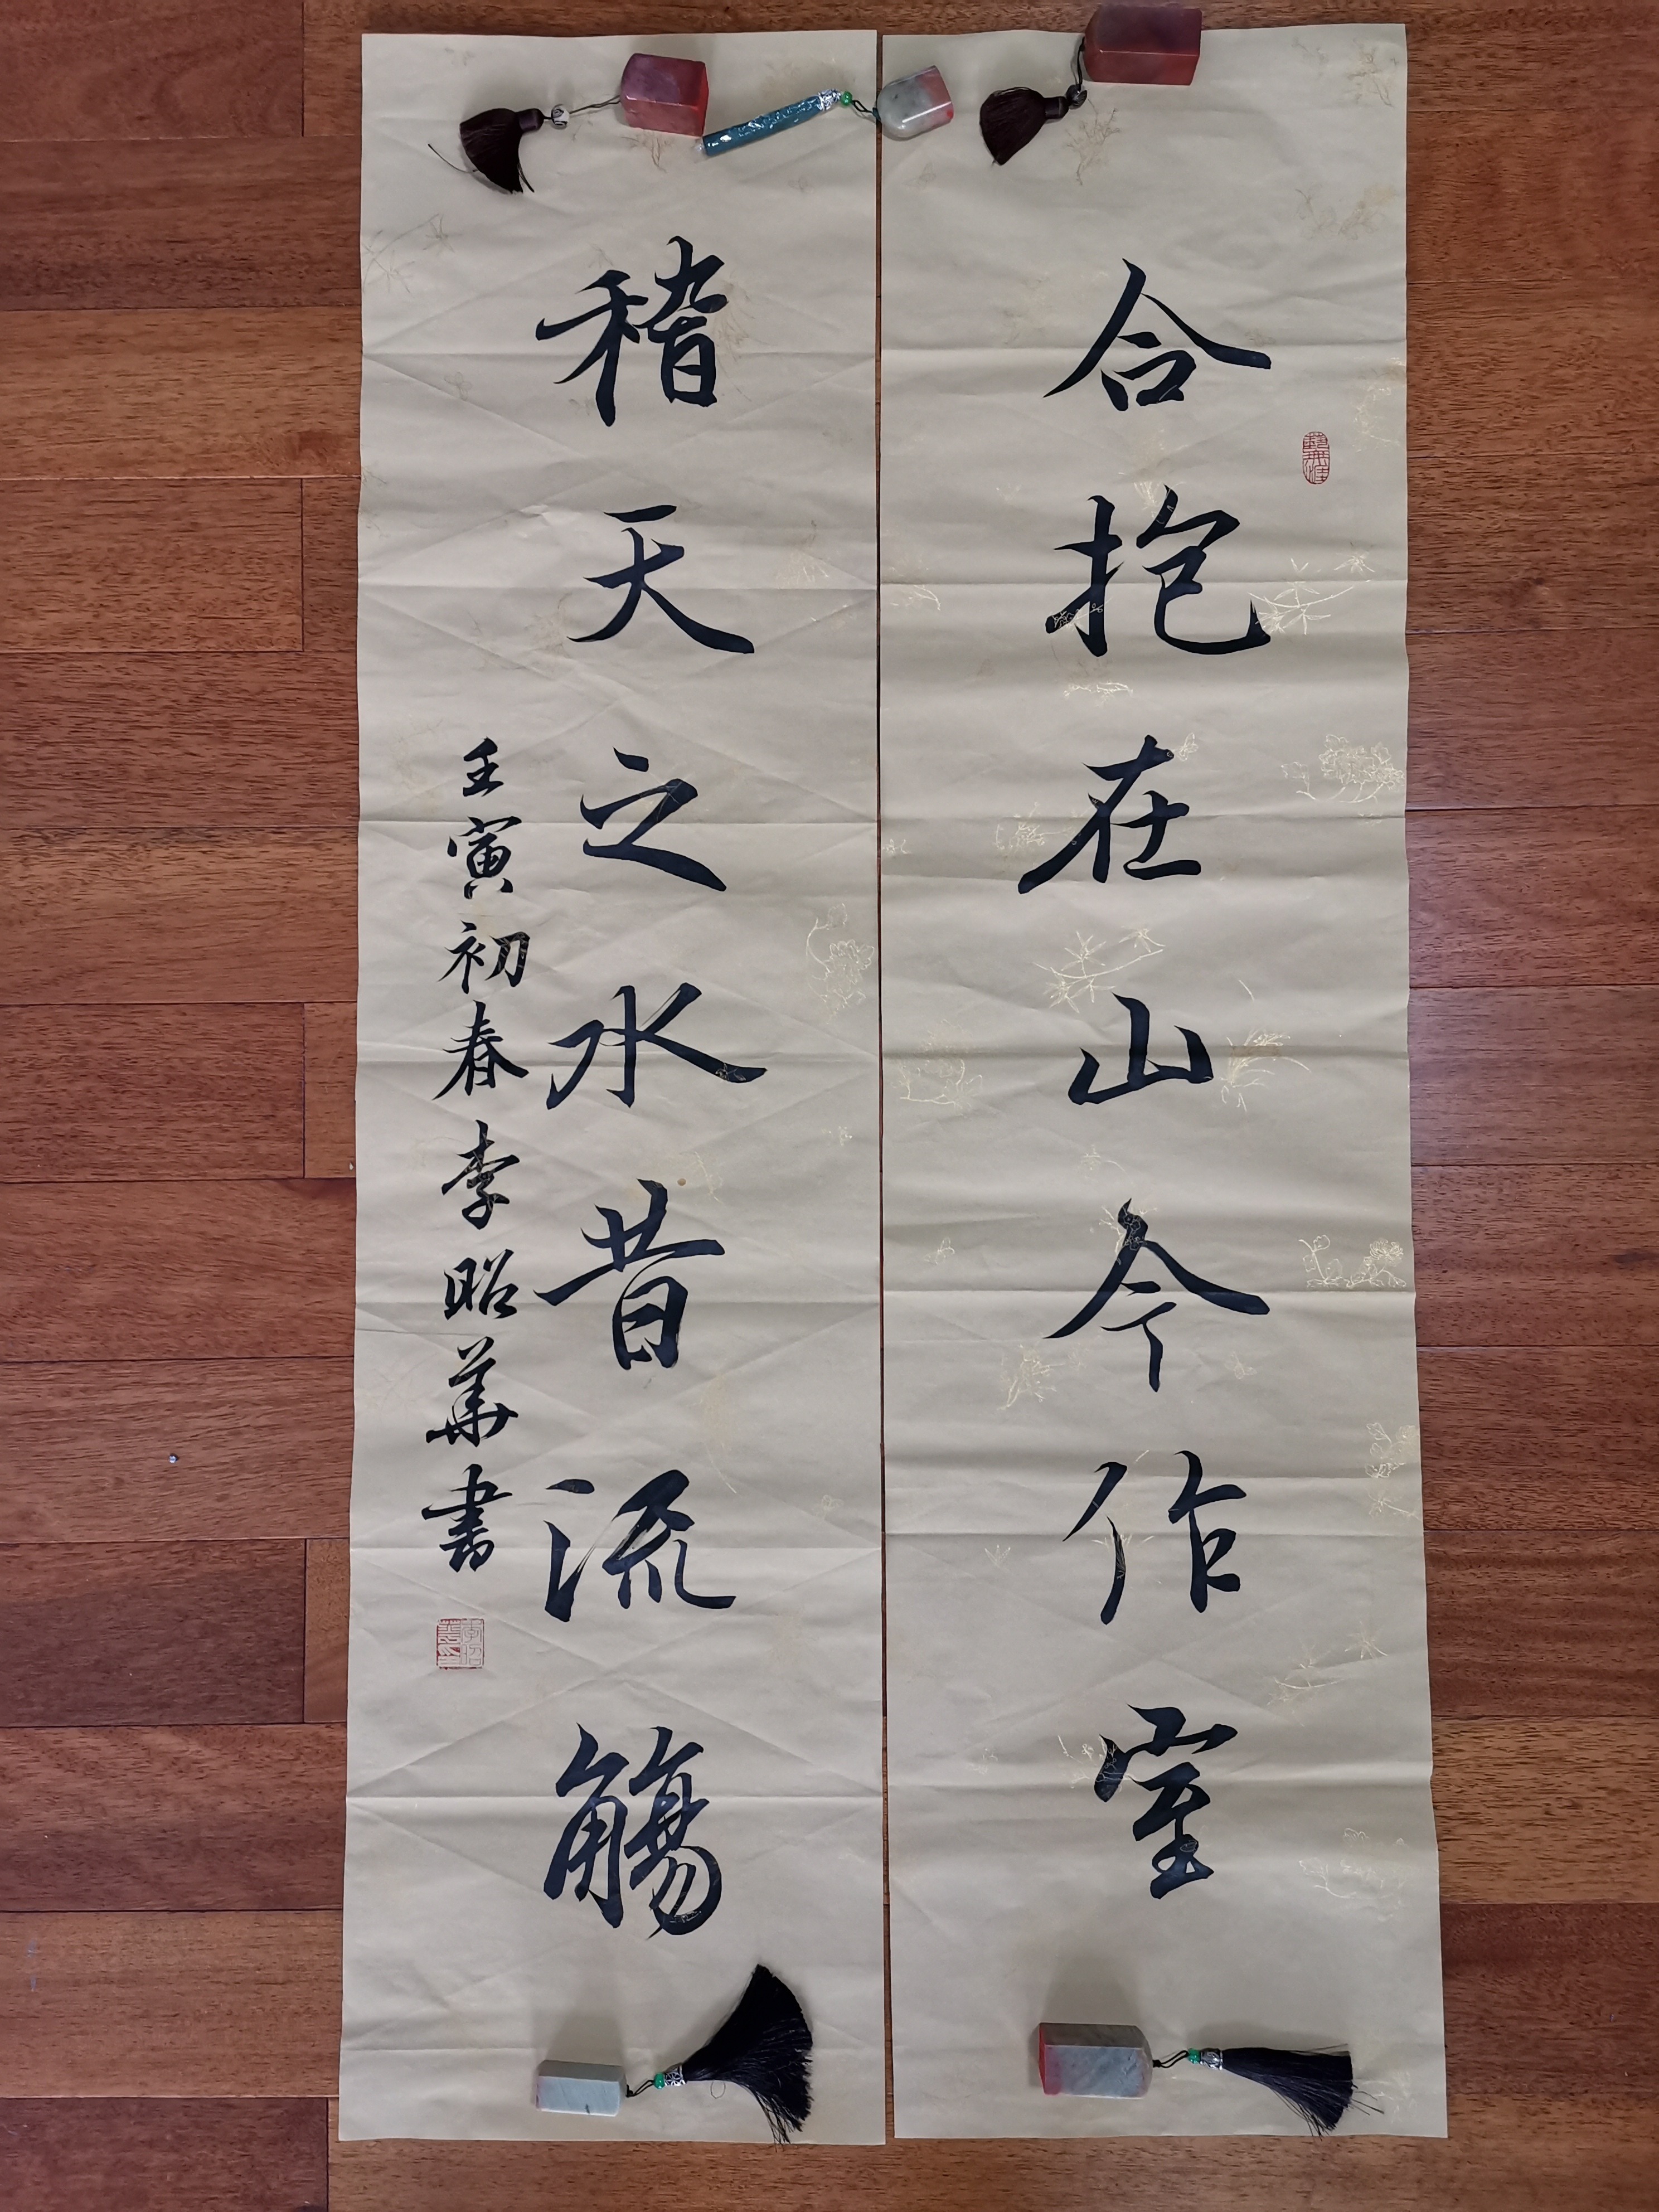 合抱在山今作室
稽天之水昔流觴
壬寅初春李昭華書